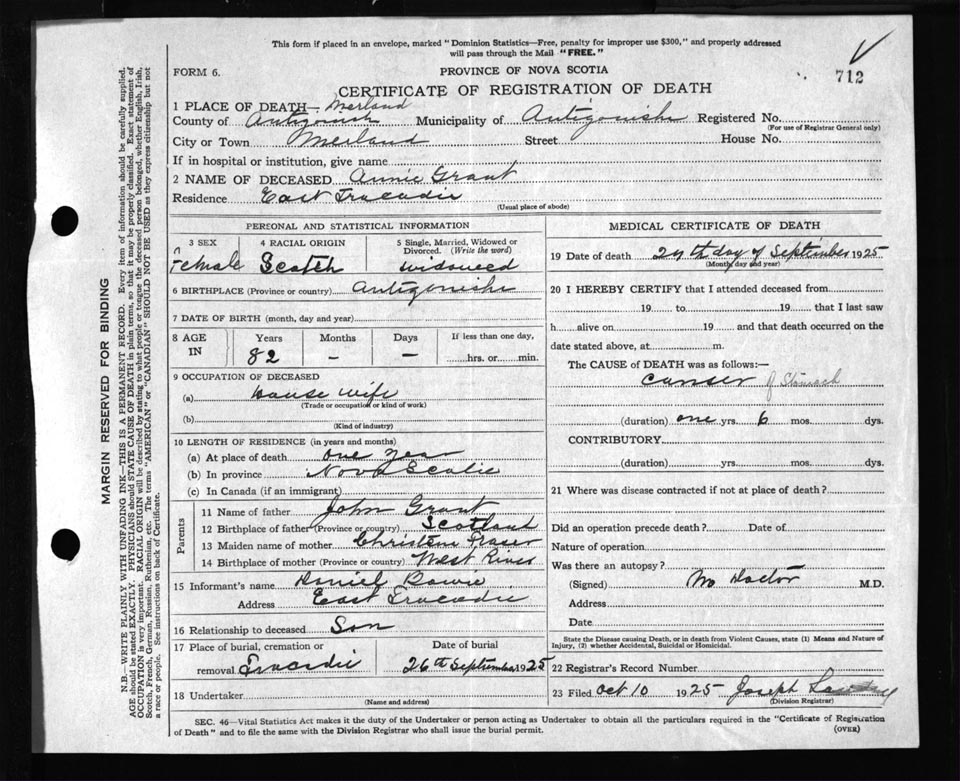 This form if placed in an envelope, marked "Dominion Statistics—Free, penalty for improper use $300," and properly addressed
will pass through the Mail "FREE."
FORM 6.
PROVINCE OF NOVA SCOTIA
712
CERTIFICATE OF REGISTRATION OF DEATH
1 PLACE OF DEATH— Merland
County of Antigonish Municipality of Antigonishe Registered No.
(For use of Registrar General only)
City or Town Merland Street House No.
If in hospital or institution, give name
2 NAME OF DECEASED Annie Grant
Residence East Tracadie
(Usual place of abode)
PERSONAL AND STATISTICAL INFORMATION
3 SEX 4 RACIAL ORIGIN 5 Single, Married, Widowed or
Divorced. (Write the word)
Female Scotch widowed
6 BIRTHPLACE (Province or country) Antigonishe
7 DATE OF BIRTH (month, day and year)
8 AGE IN Years Months Days If less than one day,
82 – – hrs. or min.
9 OCCUPATION OF DECEASED
(a) house wife
(Trade or occupation or kind of work)
(b)
(Kind of industry)
10 LENGTH OF RESIDENCE (in years and months)
(a) At place of death one year
(b) In province Nova Scotia
(c) In Canada (if an immigrant)
Parents
11 Name of father John Grant
12 Birthplace of father (Province or country) Scotland
13 Maiden name of mother Christene Fraser
14 Birthplace of mother (Province or country) West River
15 Informant's name Daniel Bowie
Address East Tracadie
16 Relationship to deceased Son
17 Place of burial, cremation or Date of burial
removal Tracadie 26th September 1925
18 Undertaker
(Name and address)
MEDICAL CERTIFICATE OF DEATH
19 Date of death 24th day of September 1925
(Month, day and year)
20 I HEREBY CERTIFY that I attended deceased from
19 to 19 that I last saw
h alive on 19 and that death occurred on the
date stated above, at m.
The CAUSE of DEATH was as follows:—
canser of Stomach
(duration) one yrs 6 mos. dys.
CONTRIBUTORY
(duration) yrs. mos. dys.
21 Where was disease contracted if not at place of death?
Did an operation precede death? Date of
Nature of operation
Was there an autopsy?
(Signed) No Doctor M.D.
Address
Date
State the Disease causing Death, or in death from Violent Causes, state (1) Means and Nature of
Injury, (2) whether Accidental, Suicidal or Homicidal.
22 Registrar's Record Number
23 Filed Oct 10 1925 Joseph
(Division Registrar)
SEC. 46—Vital Statistics Act makes it the duty of the Undertaker or person acting as Undertaker to obtain all the particulars required in the "Certificate of Registration
of Death" and to file the same with the Division Registrar who shall issue the burial permit.
(OVER)
MARGIN RESERVED FOR BINDING
N.B.—WRITE PLAINLY WITH UNFADING INK—THIS IS A PERMANENT RECORD. Every item of information should be carefully supplied.
AGE should be stated EXACTLY. PHYSICIANS should STATE CAUSE OF DEATH in plain terms, so that it may be properly classified. Exact statement of
OCCUPATION is very important. RACIAL ORIGIN will be described by stating to what people or tongue the deceased person belonged, whether English, Irish,
Scotch, French, German, Russian, Ruthenian, etc. The terms "AMERICAN" or "CANADIAN" SHOULD NOT BE USED as they express citizenship but not
a race or people. See instructions on back of Certificate.